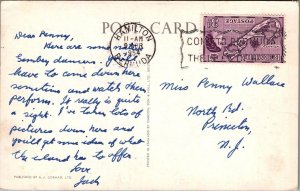 POST CARD
HAMILTON
11-AM
BERMUDA
POSTAGE
Dear Penny,
Here are some
Gombey dancers. You'll
have to come down here
sometime and watch them
perform. It really is quite
a sight. I've taken lots of
pictures down here and
you'll get some idea of what
the island has to offer.
Love
Jack
COME TO
THE
Miss Penny Wallace
North Rd.
Princeton,
N. J.